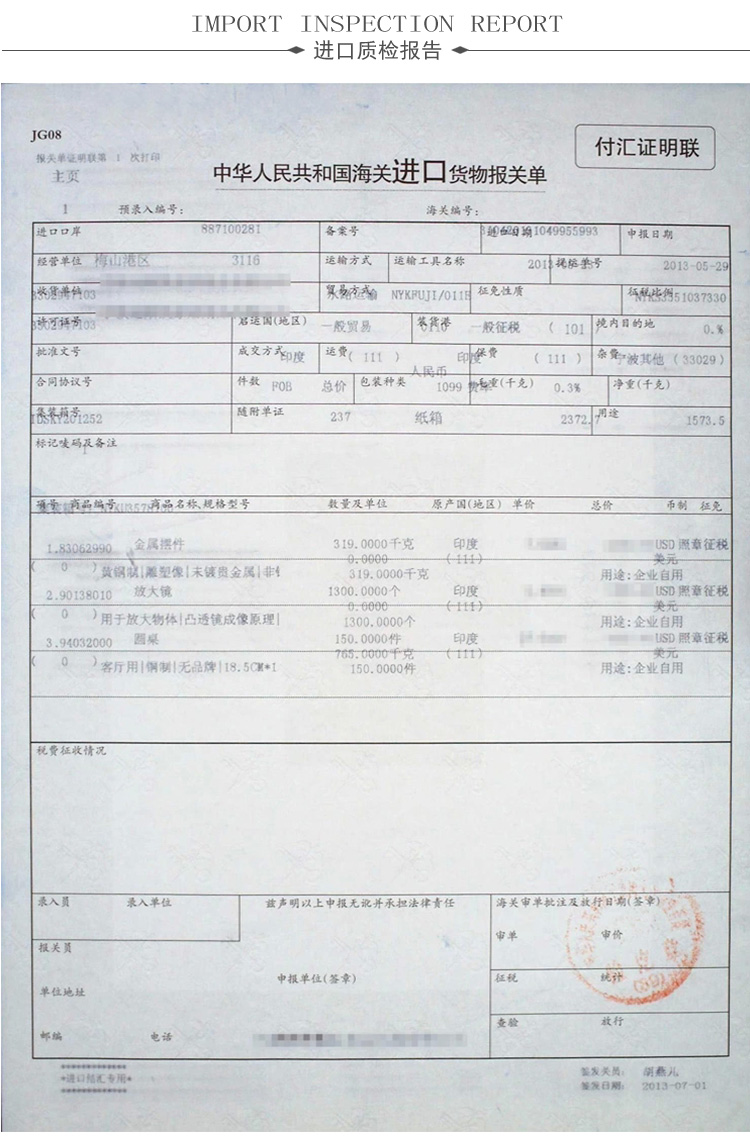 IMPORT INSPECTION REPORT
进口质检报告
JG08
付汇证明联
报关单证明联第 1 次打印
主页
中华人民共和国海关进口货物报关单
1 预录入编号: 海关编号:
进口口岸 887100281 备案号 进口日期 申报日期
经营单位 梅山港区 3116 运输方式 运输工具名称 提运单号 2013-05-29
收货单位 贸易方式 NYKFUJI/011E 征免性质 征税比例
许可证号 启运国(地区) 一般贸易 装货港 一般征税 ( 101 ) 境内目的地 0.%
批准文号 成交方式 印度 运费 ( 111 ) 印度 保费 ( 111 ) 杂费 宁波其他 (33029)
人民币
合同协议号 件数 FOB 总价 包装种类 1099 毛重(千克) 0.3% 净重(千克)
集装箱号 随附单证 237 纸箱 2372.7 用途 1573.5
标记唛码及备注
项号 商品编号 商品名称、规格型号 数量及单位 原产国(地区) 单价 总价 币制 征免
1.83062990 金属摆件 319.0000千克 印度 USD 照章征税
0.0000 (111) 美元
( 0 ) 黄铜制|雕塑像|未镀贵金属|非 319.0000千克 用途:企业自用
2.90138010 放大镜 1300.0000个 印度 USD 照章征税
0.0000 (111) 美元
( 0 ) 用于放大物体|凸透镜成像原理| 1300.0000个 用途:企业自用
3.94032000 圆桌 150.0000件 印度 USD 照章征税
765.0000千克 (111) 美元
( 0 ) 客厅用|铜制|无品牌|18.5CM*1 150.0000件 用途:企业自用
税费征收情况
录入员 录入单位 兹声明以上申报无讹并承担法律责任 海关审单批注及放行日期(签章)
审单 审价
报关员
申报单位(签章) 征税 统计
单位地址
查验 放行
邮编 电话
*进口付汇专用*
签发关员:
签发日期: 2013-07-01